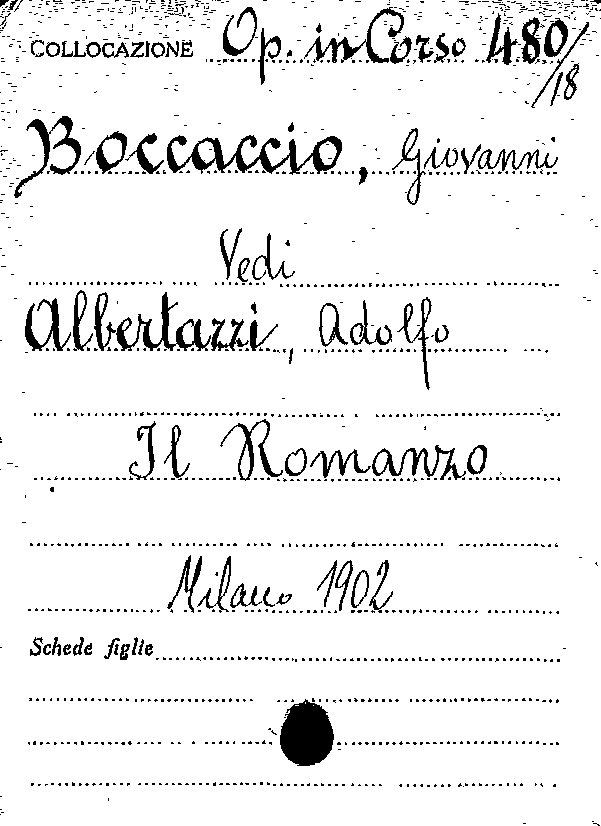 COLLOCAZIONE Op. in Corso 480/18
Boccaccio, Giovanni
Vedi
Albertazzi, Adolfo
Il Romanzo
Milano 1902
Schede figlie